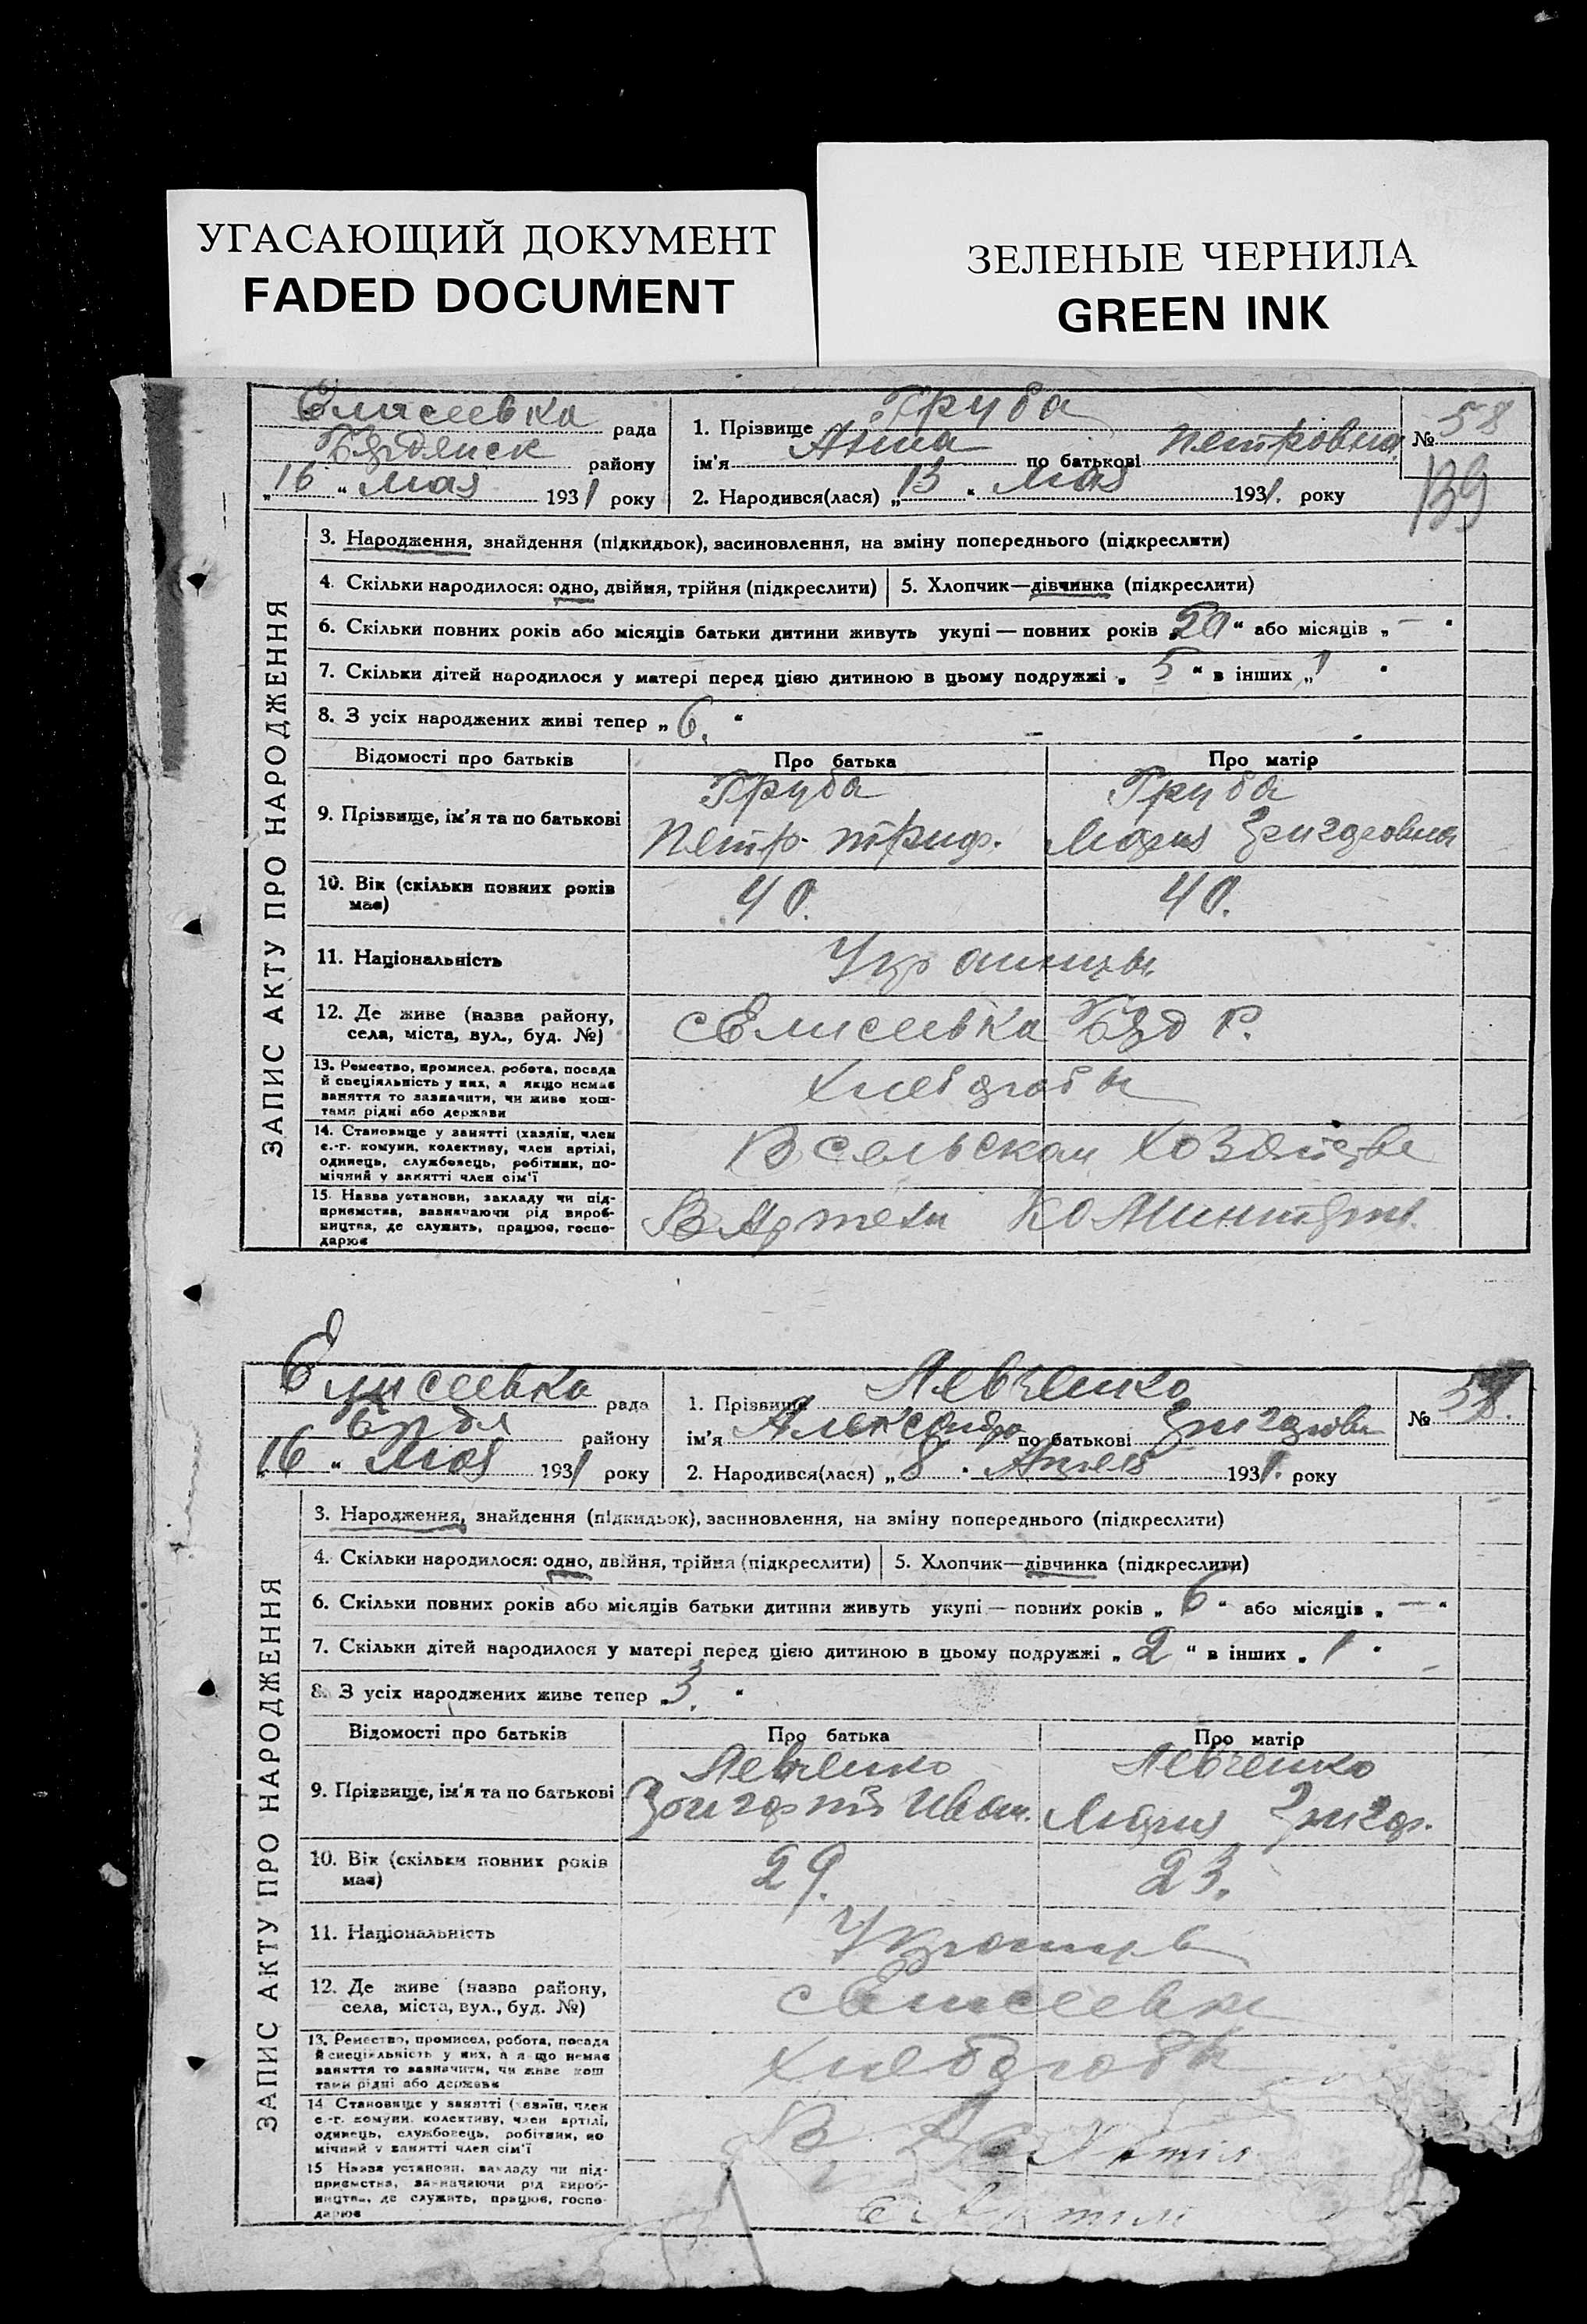 УГАСАЮЩИЙ ДОКУМЕНТ
FADED DOCUMENT
ЗЕЛЕНЫЕ ЧЕРНИЛА
GREEN INK
Елисеевка рада
району
„16 “ мая 1931 року
1. Прізвище Груба
ім'я Анна по батькові Петровна
2. Народився(лася) „13 “ мая 1931. року
№ 58
139
ЗАПИС АКТУ ПРО НАРОДЖЕННЯ
3. Народження, знайдення (підкидьок), засиновлення, на зміну попереднього (підкреслити)
4. Скільки народилося: одно, двійня, трійня (підкреслити) 5. Хлопчик—дівчинка (підкреслити)
6. Скільки повних років або місяців батьки дитини живуть укупі — повних років „20“ або місяців „—“
7. Скільки дітей народилося у матері перед цією дитиною в цьому подружжі „5“ в інших „1
8. З усіх народжених живі тепер „6.“
Відомості про батьків Про батька Про матір
9. Прізвище, ім'я та по батькові
Груба Груба
Петр. триф. Мария Григоровна
10. Вік (скільки повних років має) 40. 40.
11. Національність Украинцы
12. Де живе (назва району, села, міста, вул., буд. №)
с Елисеевка Бзд Р.
13. Ремество, промисел, робота, посада
й спеціяльність у них, а якщо немає
заняття то зазначити, чи живе кош-
тами рідні або держави
Хлебороби
14. Становище у занятті (хазяїн, член
с.-г. комуни, колективу, член артілі,
одинець, службовець, робітник, по-
мічний у занятті член сім'ї
В сельском хозяйстве
15. Назва установи, закладу чи під-
приємства, зазначаючи рід вироб-
ництва, де служить, працює, госпо-
дарює
В Артели Коминтерн.
Елисеевка рада
району
„16 “ мая 1931 року
1. Прізвище Левченко
ім'я Александра по батькові Григоровн
2. Народився(лася) „8 “ Апреля 1931. року
№ 58.
ЗАПИС АКТУ ПРО НАРОДЖЕННЯ
3. Народження, знайдення (підкидьок), засиновлення, на зміну попереднього (підкреслити)
4. Скільки народилося: одно, двійня, трійня (підкреслити) 5. Хлопчик—дівчинка (підкреслити)
6. Скільки повних років або місяців батьки дитини живуть укупі — повних років „6“ або місяців „—“
7. Скільки дітей народилося у матері перед цією дитиною в цьому подружжі „2“ в інших „1“
8. З усіх народжених живе тепер „3.“
Відомості про батьків Про батька Про матір
9. Прізвище, ім'я та по батькові
Левченко Левченко
Григорий Иван. Мария Григор.
10. Вік (скільки повних років має) 29. 23.
11. Національність Украинцы
12. Де живе (назва району, села, міста, вул., буд. №)
с Елисеевка
13. Ремество, промисел, робота, посада
й спеціяльність у них, а якщо немає
заняття то зазначити, чи живе кош
тами рідні або держави
Хлебороби
14 Становище у занятті (хазяїн, член
с.-г. комуни, колективу, член артілі,
одинець, службовець, робітник, по
мічний у занятті член сім'ї
В
15 Назва установи, закладу чи під-
приємства, зазначаючи рід вироб-
ництва, де служить, працює, госпо
дарює